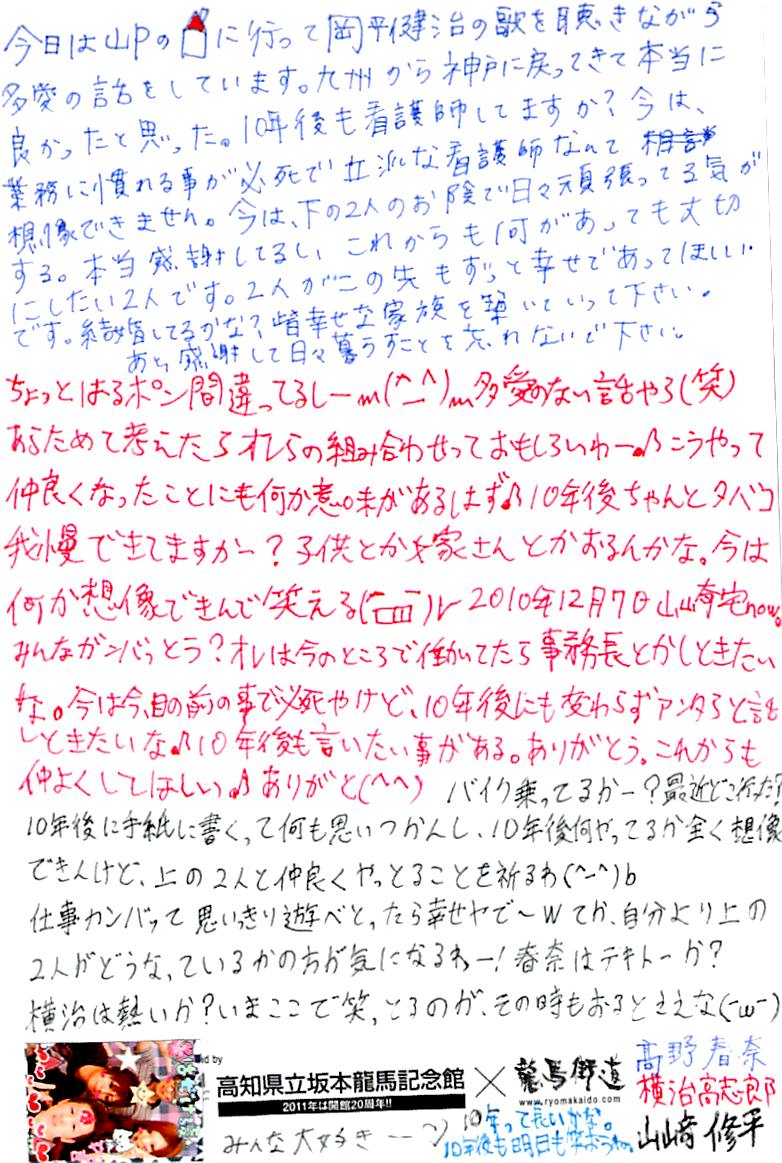 今日は山Pの に行って岡平健治の歌を聴きながら
多愛の話をしています。九州から神戸に戻ってきて本当に
良かったと思った。10年後も看護師してますか?今は、
業務に慣れる事が必死で立派な看護師なんて
想像できません。今は、下の2人のお陰で日々頑張ってる気が
する。本当感謝してるし これからも何があっても大切
にしたい2人です。2人がこの先もずっと幸せであってほしい
です。結婚してるかな?皆幸せな家族を築いていって下さい。
あと、感謝して日々暮らすことを忘れないで下さい。
ちょっとはるポン間違ってるしーm(^_^)m多愛のない話やろ(笑)
あらためて考えたらオレらの組み合わせっておもしろいわー♪こうやって
仲良くなったことにも何か意味があるはず♪10年後ちゃんとタバコ
我慢できてますかー?子供とか家さんとかおるんかな。今は
何か想像できんで笑える 2010年12月7日山崎宅now。
みんなガンバっとう?オレは今のところで働いてたら事務長とかしときたい
な。今は今、目の前の事で必死やけど、10年後にも変わらずアンタらと話
しときたいな♪10年後も言いたい事がある。ありがとう。これからも
仲よくしてほしい♪ありがと(^^) バイク乗ってるかー?最近どこ行った?
10年後に手紙に書くって何も思いつかんし、10年後何やってるか全く想像
できんけど、上の2人と仲良くやっとることを祈るわ(^-^)b
仕事ガンバって思いきり遊べとったら幸せヤで〜w てか、自分より上の
2人がどうなっているかの方が気になるわー!春奈はテキトーか?
横治は熱いか?いまここで笑っとるのが、その時もおるとええな(-ω-)
高知県立坂本龍馬記念館 × 龍馬街道
www.ryomakaido.com
2011年は開館20周年!!
高野春奈
横治高志良郎
山崎修平
みんな大好きーー
10年って長いかな。
10年後も明日も笑おうね。